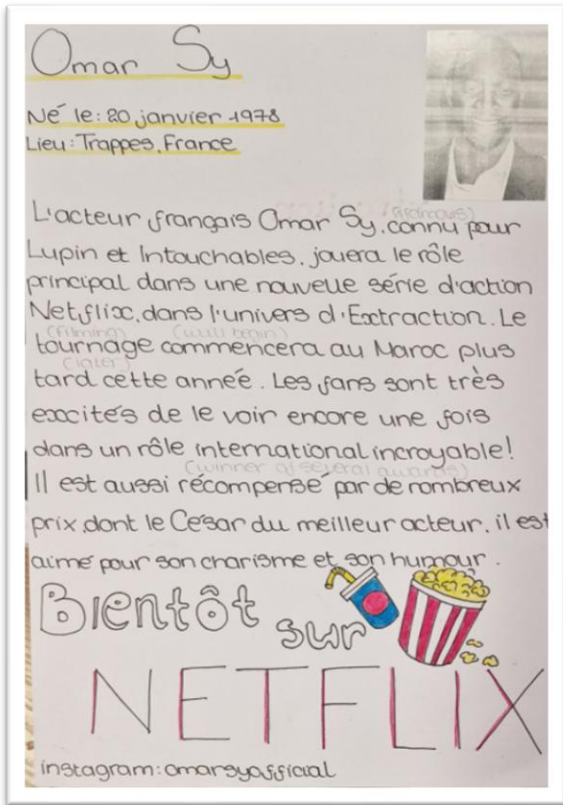 Omar Sy
Né le: 20 janvier 1978
Lieu: Trappes, France
(famous)
L'acteur français Omar Sy, connu pour
Lupin et Intouchables, jouera le rôle
principal dans une nouvelle série d'action
Netflix, dans l'univers d'Extraction. Le
(filming) (will begin)
tournage commencera au Maroc plus
(later)
tard cette année. Les fans sont très
excités de le voir encore une fois
dans un rôle international incroyable!
(winner of several awards)
Il est aussi récompensé par de nombreux
prix, dont le César du meilleur acteur, il est
aimé pour son charisme et son humour.
Bientôt
sur
NETFLIX
instagram: omarsyofficial